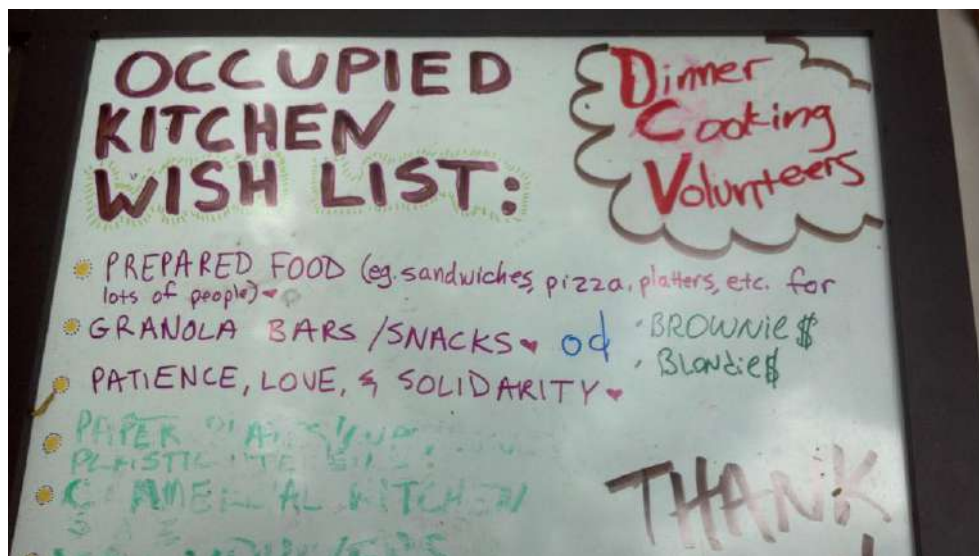 OCCUPIED
KITCHEN
WISH LIST:
Dinner
Cooking
Volunteers
PREPARED FOOD (eg. sandwiches, pizza, platters, etc. for
lots of people)
GRANOLA BARS/SNACKS od
· BROWNIE$
· BLONDIE$
PATIENCE, LOVE, & SOLIDARITY
PAPER
PLASTIC
KITCHEN
THANK